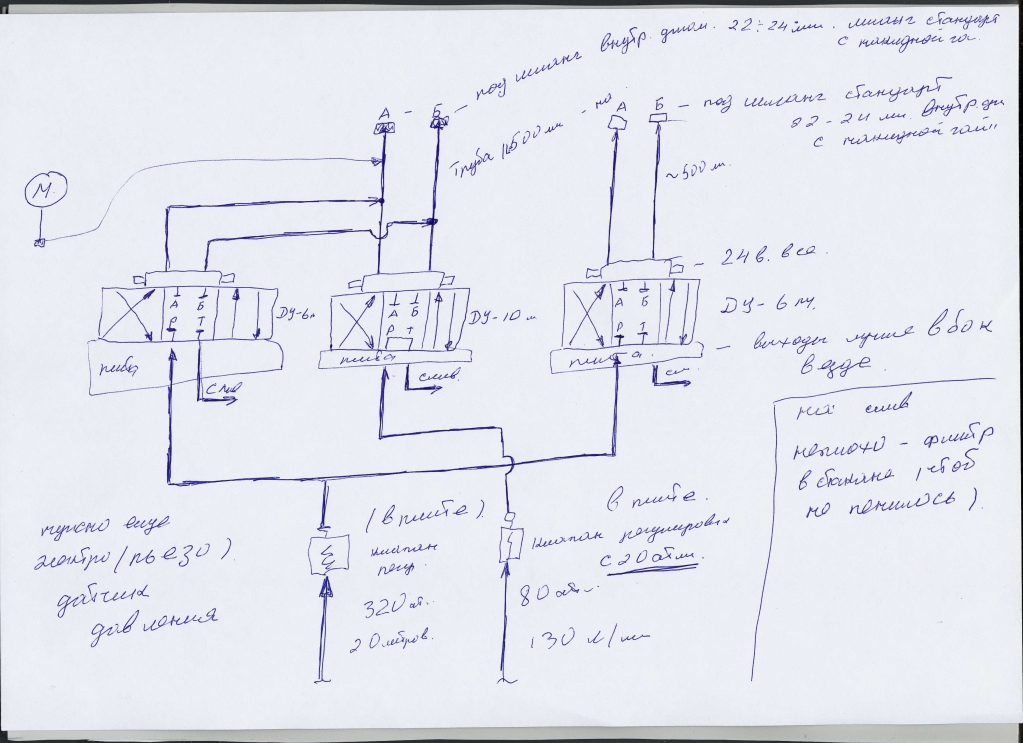 под шланг внутр. диам. 22÷24 мм. шланг стандарт
с накидной га.
А – Б –
Труба ~500 мм
А Б – под шланг стандарт
22-24 мм. внутр. ди
с накидной гай
~500 м.
М
24 в. все.
А Б
Р Т
ДУ-6
А Б
Р Т
ДУ-10 м
А Б
Р Т
ДУ-6 м.
плита
плита
плита
выходы лучше вбок
везде.
слив
слив.
сл.
слив
неплохо – фильтр
в стакане, чтоб
не пенилось).
нужно еще
электро (пьезо)
датчик
давления
(в плите)
клапан
регул.
320 ат.
20 литров.
в плите.
клапан регулировки
с 20 атм.
80 ат
130 л/м